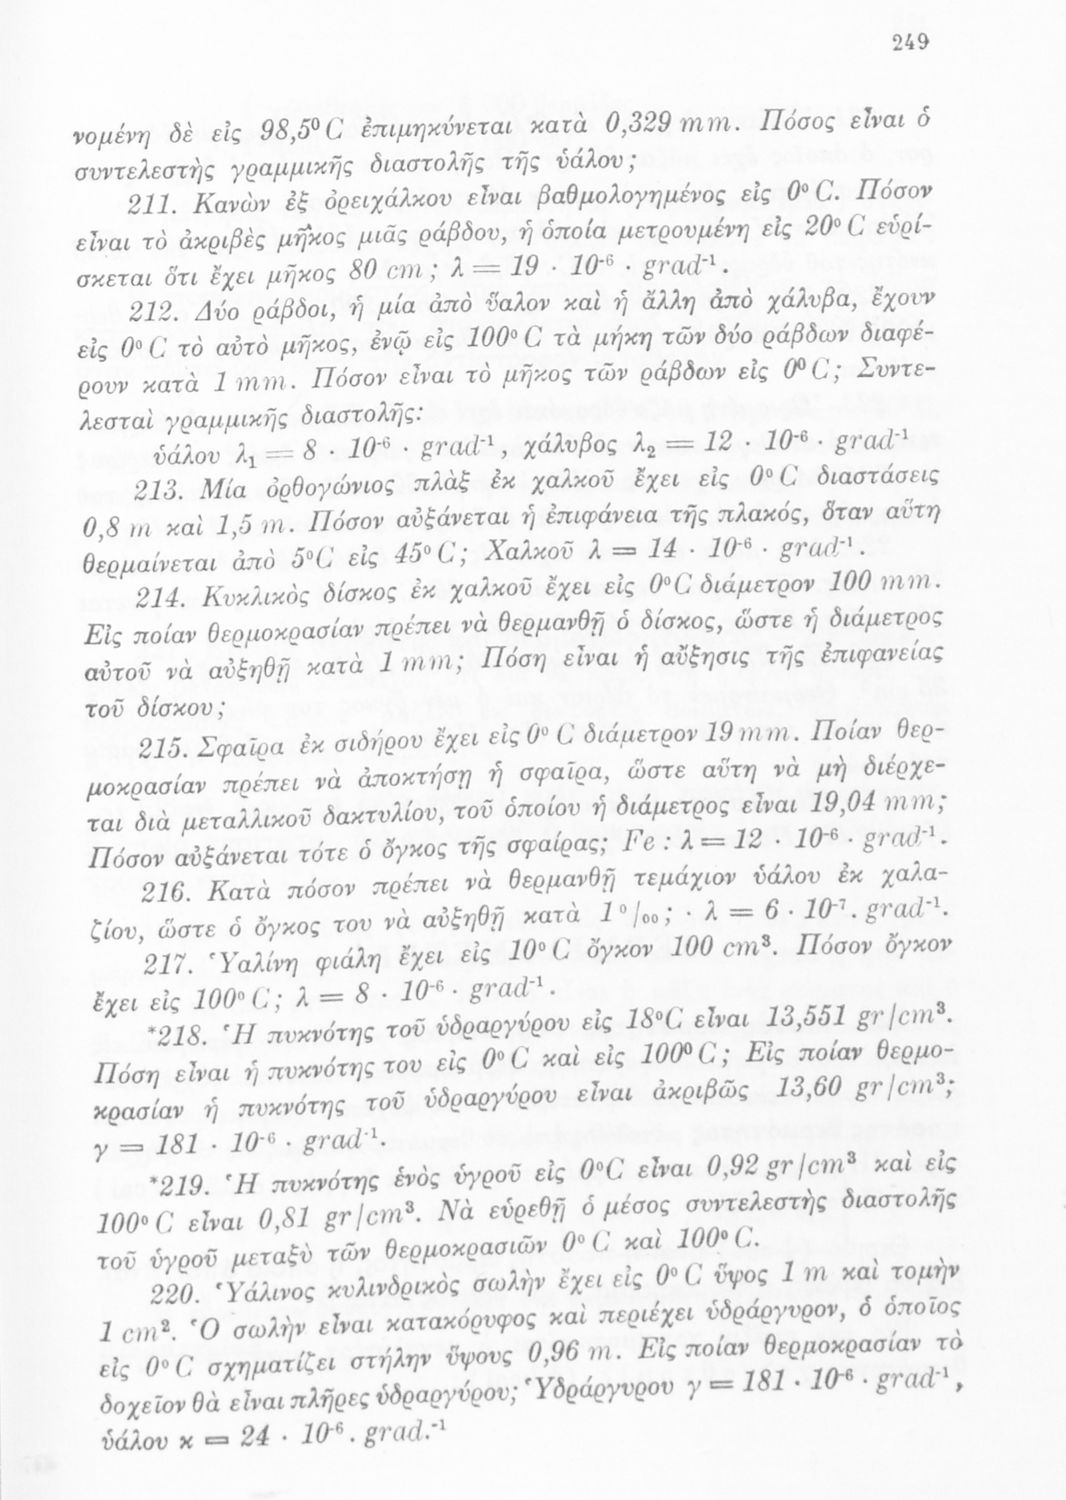 249
νομένη δὲ εἰς 98,5⁰ C ἐπιμηκύνεται κατὰ 0,329 mm. Πόσος εἶναι ὁ
συντελεστὴς γραμμικῆς διαστολῆς τῆς ὑάλου;
211. Κανὼν ἐξ ὀρειχάλκου εἶναι βαθμολογημένος εἰς 0⁰ C. Πόσον
εἶναι τὸ ἀκριβὲς μῆκος μιᾶς ράβδου, ἡ ὁποία μετρουμένη εἰς 20⁰ C εὑρί-
σκεται ὅτι ἔχει μῆκος 80 cm; λ = 19 · 10⁻⁶ · grad⁻¹.
212. Δύο ράβδοι, ἡ μία ἀπὸ ὕαλον καὶ ἡ ἄλλη ἀπὸ χάλυβα, ἔχουν
εἰς 0⁰ C τὸ αὐτὸ μῆκος, ἐνῷ εἰς 100⁰ C τὰ μήκη τῶν δύο ράβδων διαφέ-
ρουν κατὰ 1 mm. Πόσον εἶναι τὸ μῆκος τῶν ράβδων εἰς 0⁰ C; Συντε-
λεσταὶ γραμμικῆς διαστολῆς:
ὑάλου λ₁ = 8 · 10⁻⁶ · grad⁻¹, χάλυβος λ₂ = 12 · 10⁻⁶ · grad⁻¹
213. Μία ὀρθογώνιος πλὰξ ἐκ χαλκοῦ ἔχει εἰς 0⁰ C διαστάσεις
0,8 m καὶ 1,5 m. Πόσον αὐξάνεται ἡ ἐπιφάνεια τῆς πλακός, ὅταν αὕτη
θερμαίνεται ἀπὸ 5⁰C εἰς 45⁰ C; Χαλκοῦ λ = 14 · 10⁻⁶ · grad⁻¹.
214. Κυκλικὸς δίσκος ἐκ χαλκοῦ ἔχει εἰς 0⁰C διάμετρον 100 mm.
Εἰς ποίαν θερμοκρασίαν πρέπει νὰ θερμανθῇ ὁ δίσκος, ὥστε ἡ διάμετρος
αὐτοῦ νὰ αὐξηθῇ κατὰ 1 mm; Πόση εἶναι ἡ αὔξησις τῆς ἐπιφανείας
τοῦ δίσκου;
215. Σφαῖρα ἐκ σιδήρου ἔχει εἰς 0⁰ C διάμετρον 19 mm. Ποίαν θερ-
μοκρασίαν πρέπει νὰ ἀποκτήσῃ ἡ σφαῖρα, ὥστε αὕτη νὰ μὴ διέρχε-
ται διὰ μεταλλικοῦ δακτυλίου, τοῦ ὁποίου ἡ διάμετρος εἶναι 19,04 mm;
Πόσον αὐξάνεται τότε ὁ ὄγκος τῆς σφαίρας; Fe : λ = 12 · 10⁻⁶ · grad⁻¹.
216. Κατὰ πόσον πρέπει νὰ θερμανθῇ τεμάχιον ὑάλου ἐκ χαλα-
ζίου, ὥστε ὁ ὄγκος του νὰ αὐξηθῇ κατὰ 1⁰/₀₀; · λ = 6 · 10⁻⁷. grad⁻¹.
217. Ὑαλίνη φιάλη ἔχει εἰς 10⁰ C ὄγκον 100 cm³. Πόσον ὄγκον
ἔχει εἰς 100⁰ C; λ = 8 · 10⁻⁶ · grad⁻¹.
*218. Ἡ πυκνότης τοῦ ὑδραργύρου εἰς 18⁰C εἶναι 13,551 gr/cm³.
Πόση εἶναι ἡ πυκνότης του εἰς 0⁰ C καὶ εἰς 100⁰ C; Εἰς ποίαν θερμο-
κρασίαν ἡ πυκνότης τοῦ ὑδραργύρου εἶναι ἀκριβῶς 13,60 gr/cm³;
γ = 181 · 10⁻⁶ · grad⁻¹.
*219. Ἡ πυκνότης ἑνὸς ὑγροῦ εἰς 0⁰C εἶναι 0,92 gr/cm³ καὶ εἰς
100⁰ C εἶναι 0,81 gr/cm³. Νὰ εὑρεθῇ ὁ μέσος συντελεστὴς διαστολῆς
τοῦ ὑγροῦ μεταξὺ τῶν θερμοκρασιῶν 0⁰ C καὶ 100⁰ C.
220. Ὑάλινος κυλινδρικὸς σωλὴν ἔχει εἰς 0⁰ C ὕψος 1 m καὶ τομὴν
1 cm². Ὁ σωλὴν εἶναι κατακόρυφος καὶ περιέχει ὑδράργυρον, ὁ ὁποῖος
εἰς 0⁰ C σχηματίζει στήλην ὕψους 0,96 m. Εἰς ποίαν θερμοκρασίαν τὸ
δοχεῖον θὰ εἶναι πλῆρες ὑδραργύρου; Ὑδράργυρου γ = 181 · 10⁻⁶ · grad⁻¹,
ὑάλου κ = 24 · 10⁻⁶. grad.⁻¹